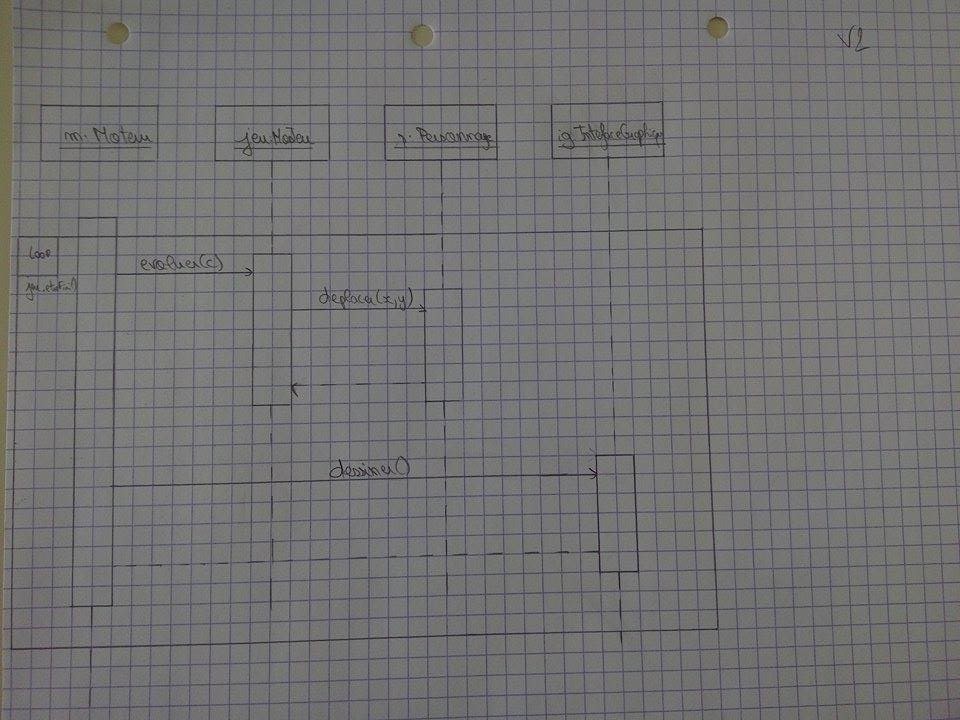 V2
m: Moteur
jeu: Moteu
j: Personnage
ig: InterfaceGraphique
loop
evoluer(c)
deplacer(x,y)
dessiner()